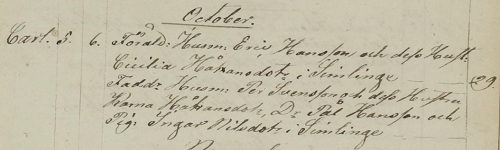 October.
Carl. 5. 6. Föräld: Husm: Eric Hansson och dess Hust:
Cicilia Håkansdotr i Simlinge 29.
Faddr: Husm: Per Svensson och dess Hustru
Karna Håkansdotr, Dr: Pål Hansson och
Pig: Ingar Nilsdotr i Simlinge